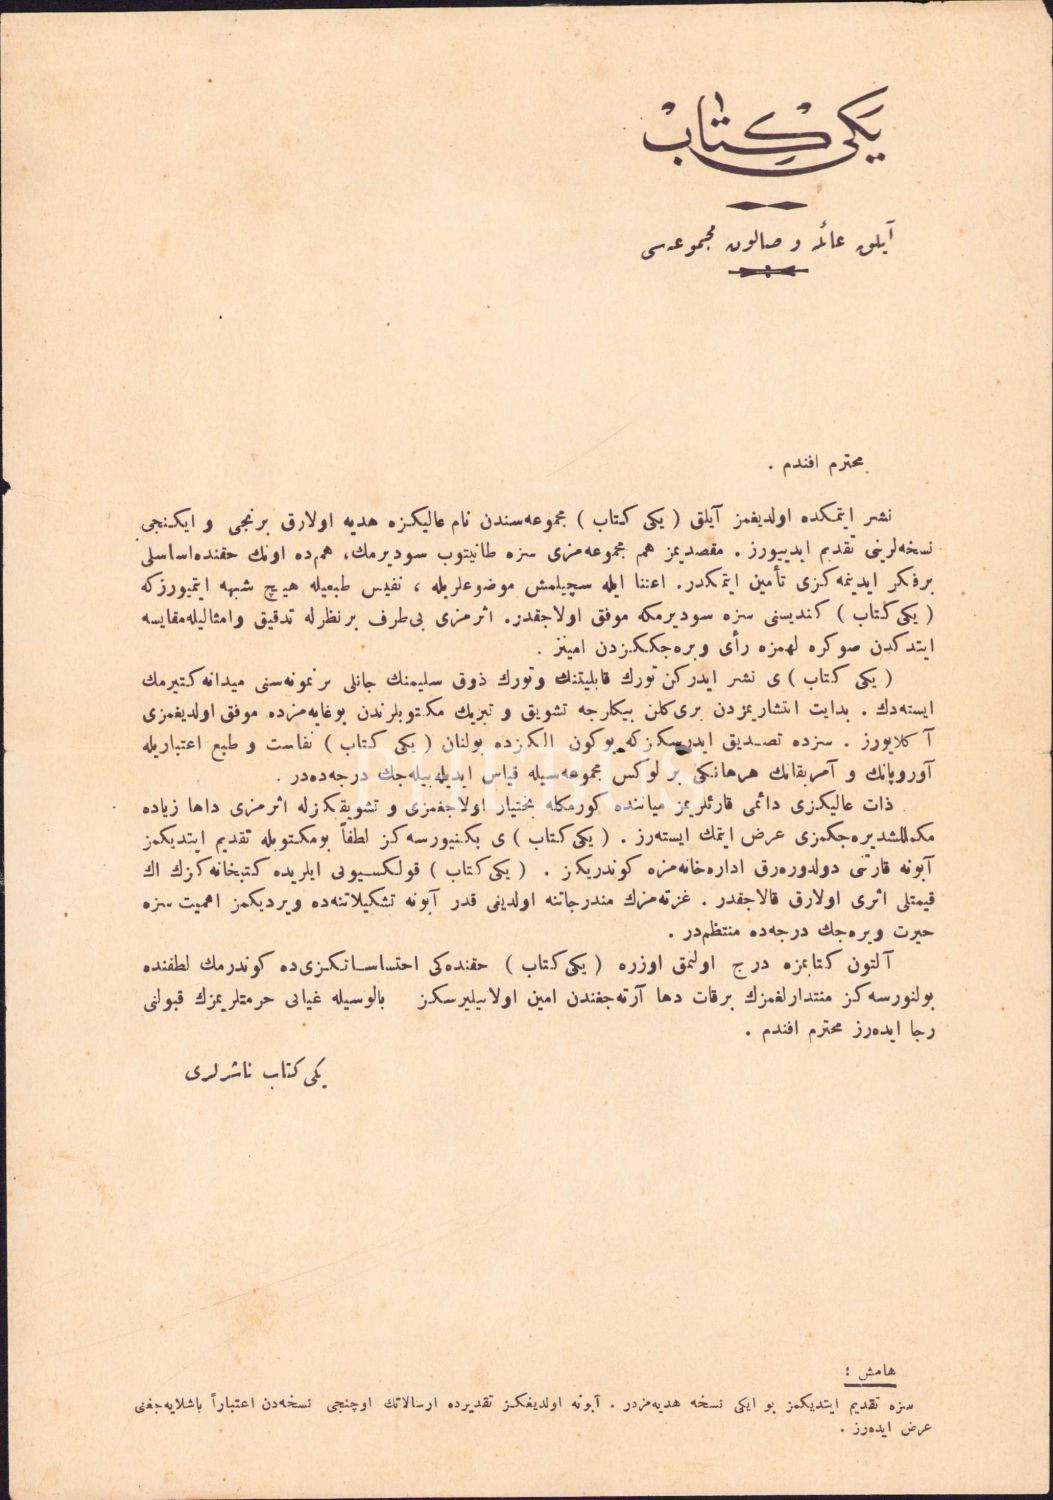 یكی كتاب
آیلق عائله و صالون مجموعه‌سی
محترم افندم .
نشر ایتمكده اولدیغمز آیلق ( یكی كتاب ) مجموعه‌سندن نام عالیكزه هدیه اولارق برنجی و ایكنجی
نسخه‌لرینی تقدیم ایدییورز . مقصدیمز هم مجموعه‌مزی سزه طانیتوب سودیرمك، هم‌ده اونك حقنده‌اساسلی
برفكر ایدینمه‌كزی تأمین ایتمكدر. اعتنا ایله سچیلمش موضوعلریله ، نفیس طبعیله هیچ شبهه ایتمیورزكه
( یكی كتاب ) كندیسنی سزه سودیرمكه موفق اولاجقدر. اثرمزی بی‌طرف برنظرله تدقیق وامثالیله‌مقایسه
ایتدكدن صوكره لهمزه رأی ویره‌جككزدن امینز .
( یكی كتاب ) ی نشر ایدركن تورك قابلیتنك وتورك ذوق سلیمنك جانلی بر نمونه‌سنی میدانه‌كتیرمك
ایسته‌دك . بدایت انتشاریمزدن بری‌كلن بیكلرجه تشویق و تبریك مكتوبلرندن بوغایه‌مزده موفق اولدیغمزی
آكلایورز . سزده تصدیق ایدرسكزكه بوكون الكزده بولنان ( یكی كتاب ) نفاست و طبع اعتباریله
آوروپانك و آمریقانك هرهانكی بر لوكس مجموعه‌سیله قیاس ایدیله‌بیله‌جك درجه‌ده‌در .
ذات عالیكزی دائمی قارئلریمز میاننده كورمكله بختیار اولاجغمزی و تشویقكزله اثرمزی داها زیاده
مكمللشدیره‌جكمزی عرض ایتمك ایسته‌رز . ( یكی كتاب ) ی بكنیورسه‌كز لطفاً بومكتوبله تقدیم ایتدیكمز
آبونه قارتنی دولدوره‌رق اداره‌خانه‌مزه كوندریكز . ( یكی كتاب ) قولكسیونی ایلریده كتبخانه‌كزك اك
قیمتلی اثری اولارق قالاجقدر . غزته‌مزك مندرجاتنه اولدیغی قدر آبونه تشكیلاتنه‌ده ویردیكمز اهمیت سزه
حیرت ویره‌جك درجه‌ده منتظم‌در .
آلتون كتابمزه درج اولنمق اوزره ( یكی كتاب ) حقنده‌كی احتساساتكزی‌ده كوندرمك لطفنده
بولنورسه‌كز منتدارلغمزك برقات دها آرته‌جغندن امین اولابیلیرسكز بالوسیله غیابی حرمتلریمزك قبولنی
رجا ایده‌رز محترم افندم .
یكی كتاب ناشرلری
هامش :
سزه تقدیم ایتدیكمز بو ایكی نسخه هدیه‌مزدر . آبونه اولدیغكز تقدیرده ارسالاتك اوچنجی نسخه‌دن اعتباراً باشلایه‌جغنی
عرض ایده‌رز .